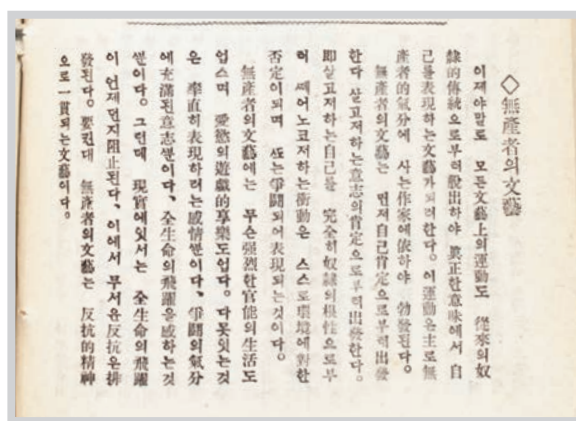 ◇無產者의文藝
이제야말로 모든文藝上의運動도 從來의奴
隸的傳統으로부터脫出하야 眞正한意味에서 自
己를表現하는文藝가되려한다。이運動은主로無
產者的氣分에 사는作家에依하야 勃發된다。
無產者의文藝는 먼저自己肯定으로부터出發
한다 살고저하는意志의肯定으로부터出發한다。
卽살고저하는自己를 完全히奴隸의根性으로부
터 쎄어노코저하는衝動은 스스로環境에對한
否定이되며 또는爭鬪되어表現되는것이다。
無產者의文藝에는 무슨强烈한官能의生活도
업스며 愛慾의遊戱的享樂도업다。다못잇는것
은 率直히表現하려는感情뿐이다、爭鬪의氣分
에充滿된意志뿐이다、全生命의飛躍을感하는것
뿐이다。그런데 現實에잇서는 全生命의飛躍
이 언제던지阻止된다、이에서 무서운反抗은排
發된다。要컨대 無產者의文藝는 反抗的精神
으로一貫되는文藝이다。